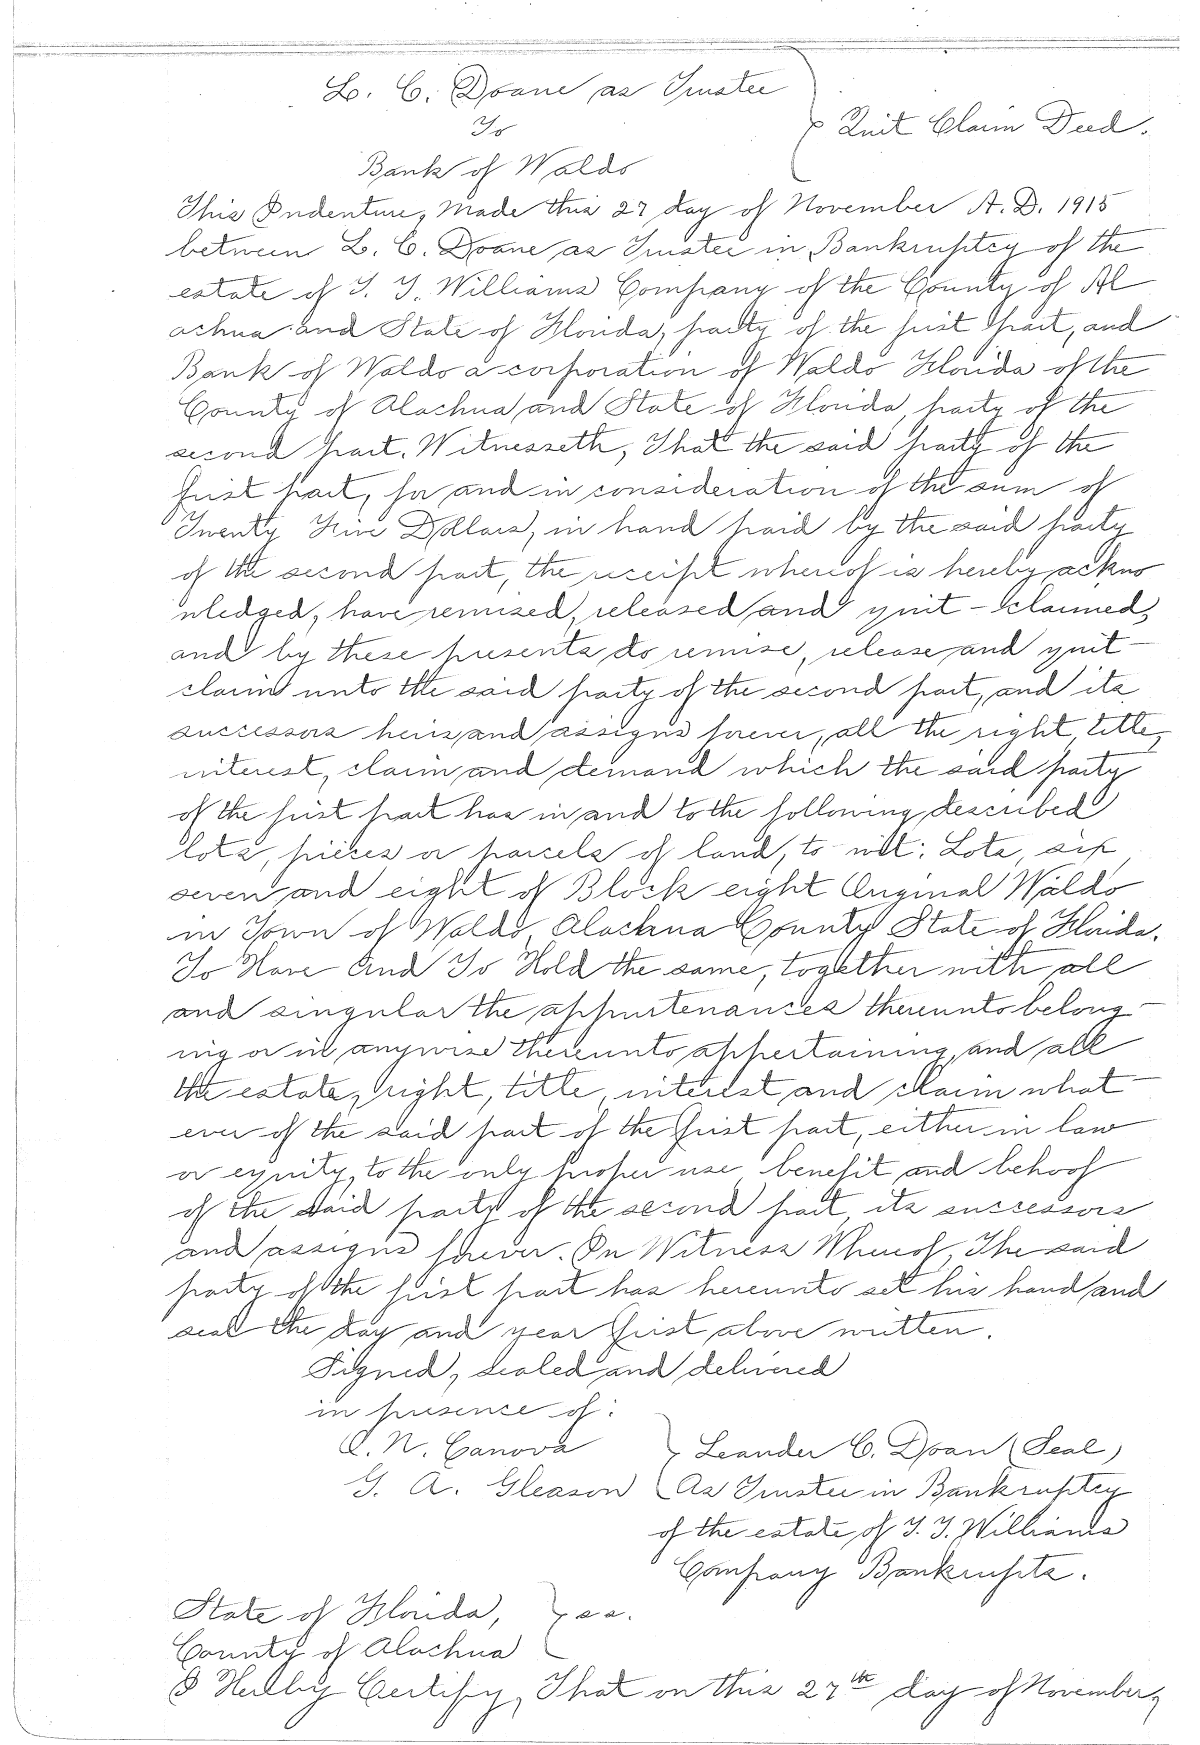 L. C. Doane as Trustee
To
Quit Claim Deed.
Bank of Waldo
This Indenture, Made this 27 day of November A. D. 1915
between L. C. Doane as Trustee in Bankruptcy of the
estate of T. T. Williams Company of the County of Al
achua and State of Florida, party of the first part, and
Bank of Waldo a corporation of Waldo Florida of the
County of Alachua and State of Florida, party of the
second part. Witnesseth, That the said party of the
first part, for and in consideration of the sum of
Twenty Five Dollars, in hand paid by the said party
of the second part, the receipt whereof is hereby ackno
wledged, have remised, released and quit-claimed,
and by these presents do remise, release and quit-
claim unto the said party of the second part, and its
successors heirs and assigns forever, all the right, title,
interest, claim and demand which the said party
of the first part has in and to the following described
lots, pieces or parcels of land, to wit: Lots, six
seven and eight of Block eight Original Waldo
in Town of Waldo, Alachua County State of Florida.
To Have And To Hold the same, together with all
and singular the appurtenances thereunto belong-
ing or in anywise thereunto appertaining, and all
the estate, right, title, interest and claim what-
ever of the said part of the first part, either in law
or equity, to the only proper use, benefit and behoof
of the said party of the second part, its successors
and assigns forever. In Witness Whereof, The said
party of the first part has hereunto set his hand and
seal the day and year first above written.
Signed, sealed and delivered
in presence of:
N. Canova Leander C. Doan (Seal)
G. A. Gleason As Trustee in Bankruptcy
of the estate of T. T. Williams
Company Bankrupts.
State of Florida, ss.
County of Alachua
I Herby Certify, That on this 27th day of November,